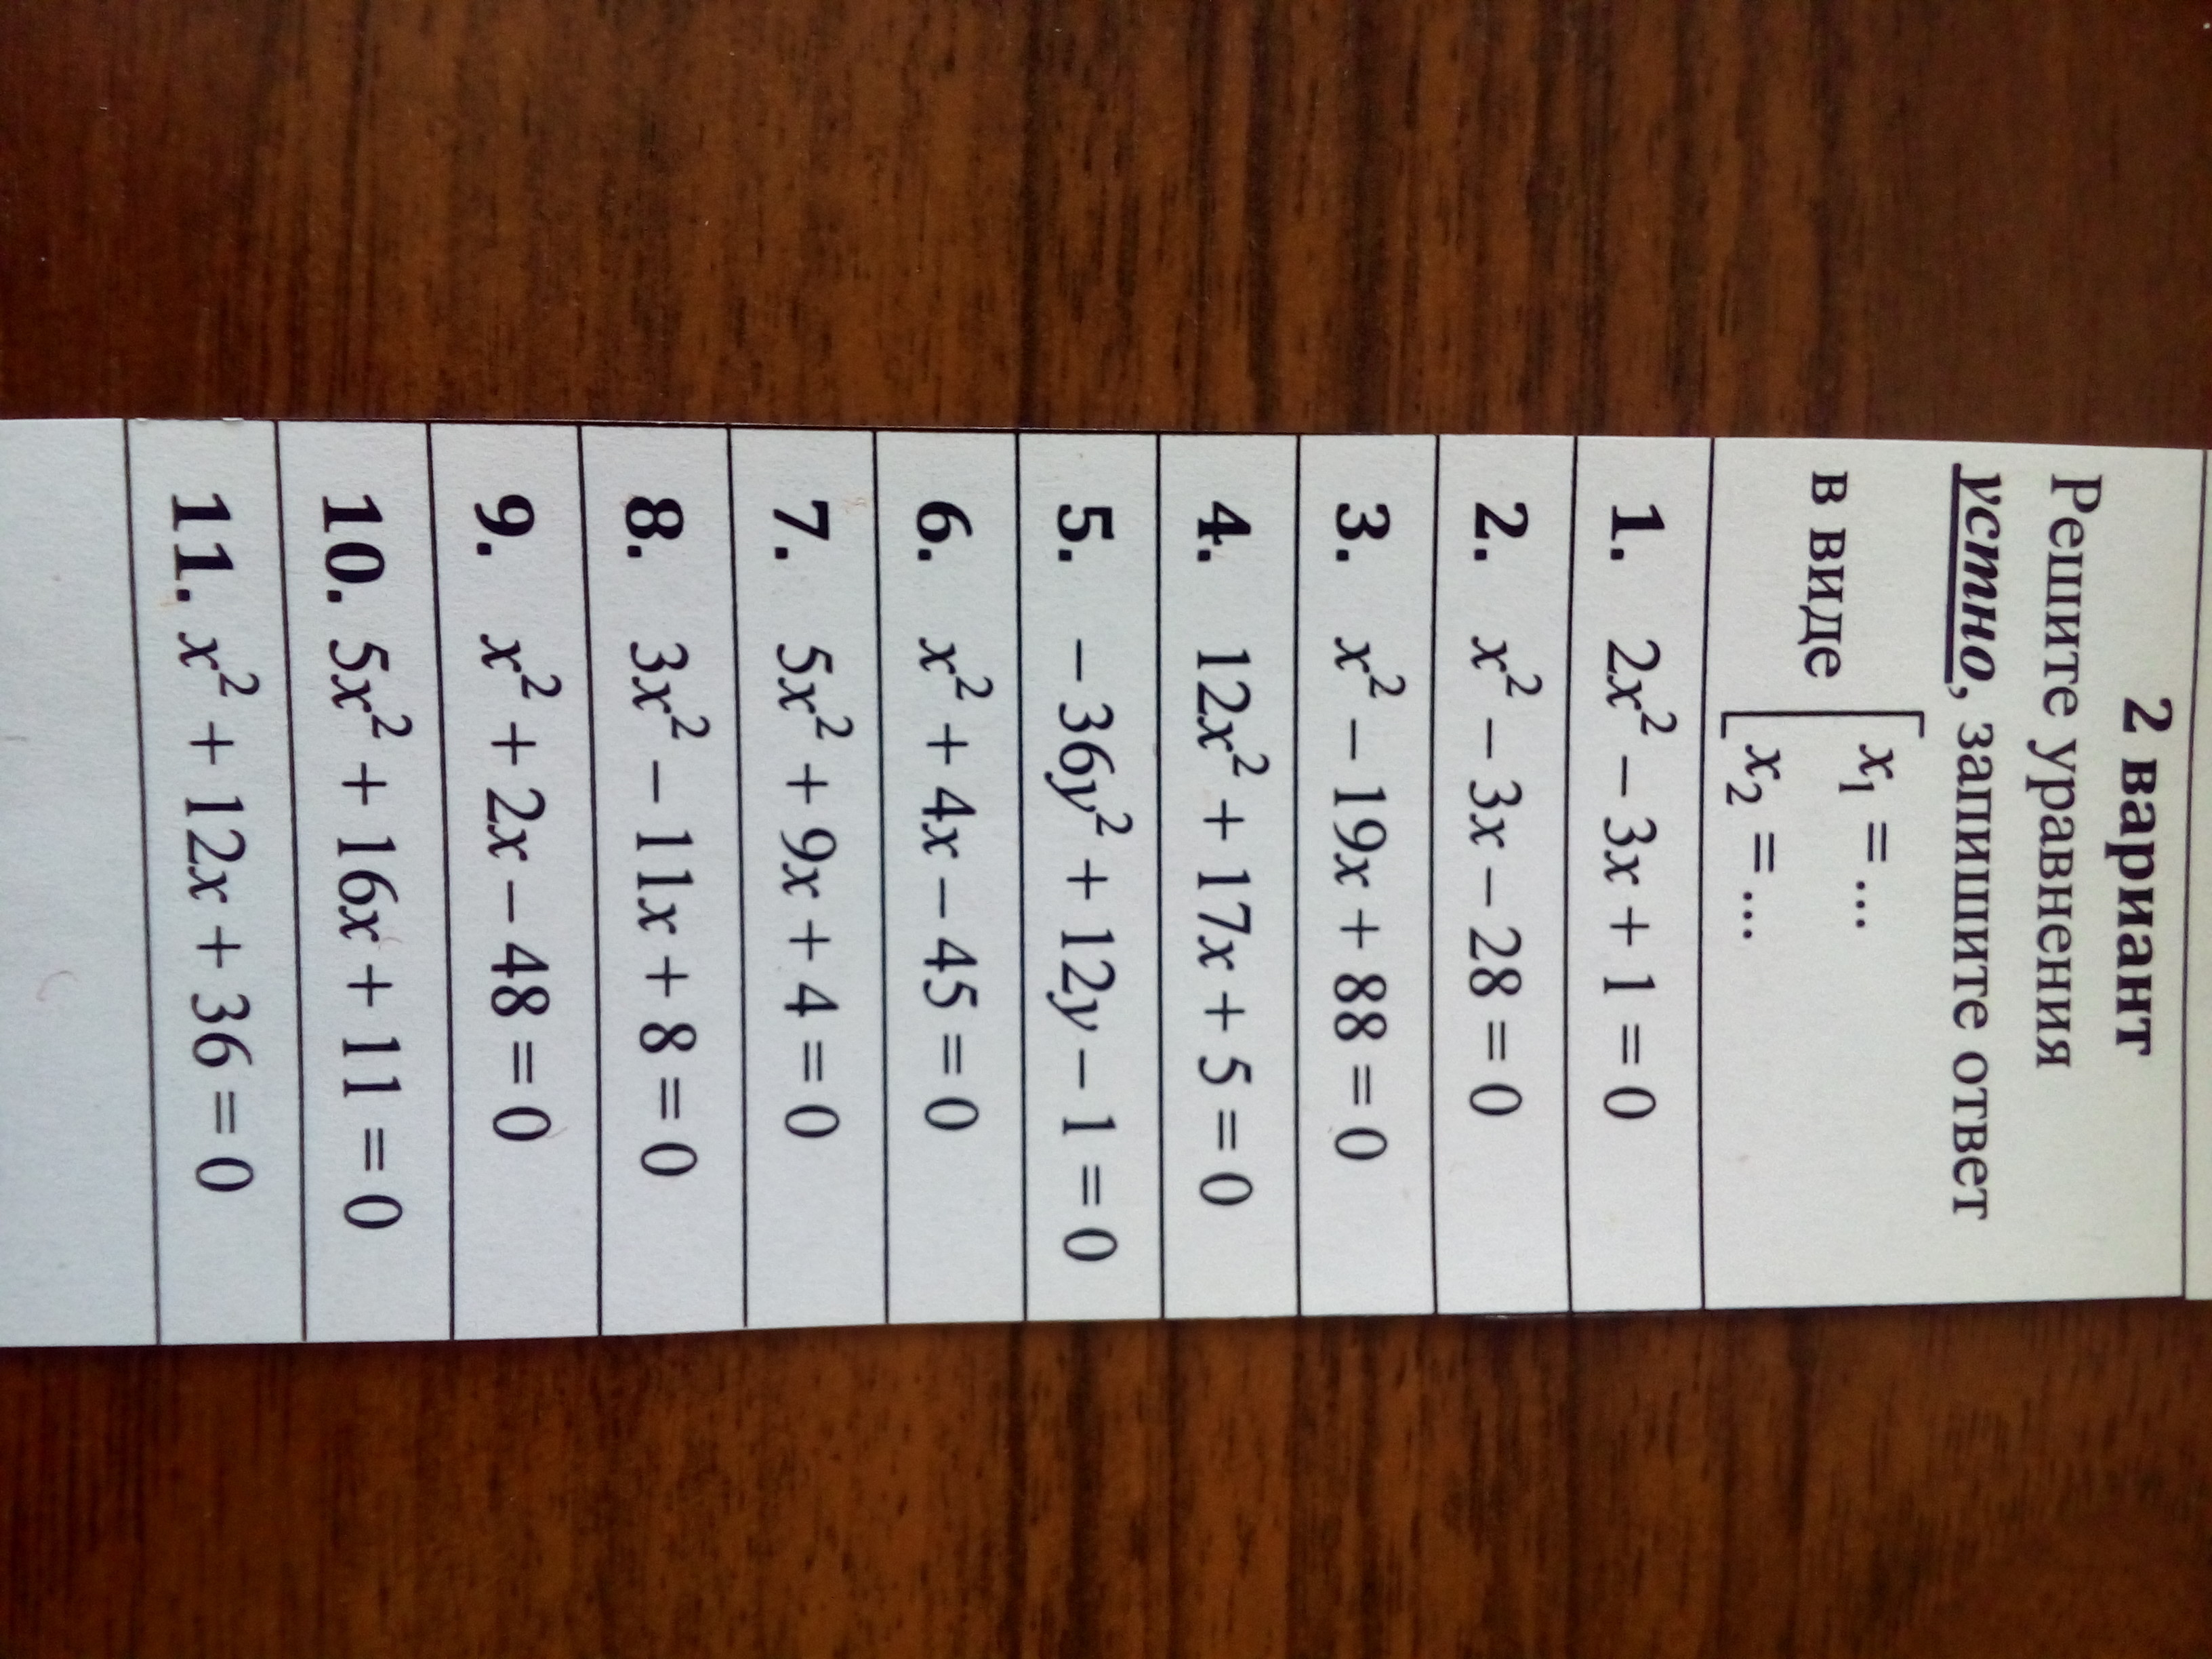 2 вариант
Решите уравнения
устно, запишите ответ
в виде [ x₁ = ...
x₂ = ...
1. 2x² − 3x + 1 = 0
2. x² − 3x − 28 = 0
3. x² − 19x + 88 = 0
4. 12x² + 17x + 5 = 0
5. −36y² + 12y − 1 = 0
6. x² + 4x − 45 = 0
7. 5x² + 9x + 4 = 0
8. 3x² − 11x + 8 = 0
9. x² + 2x − 48 = 0
10. 5x² + 16x + 11 = 0
11. x² + 12x + 36 = 0